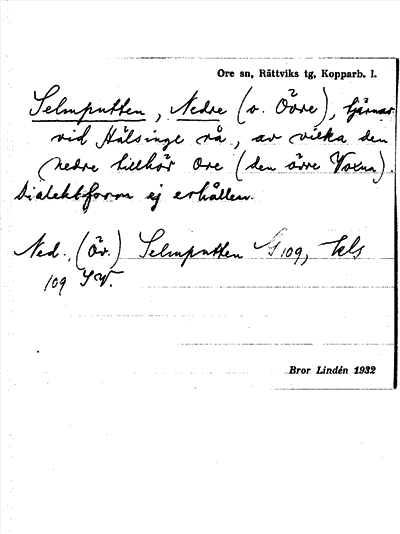 Ore sn, Rättviks tg, Kopparb. l.
Selmputten, Nedre (o. Övre), tjärnar
vid Hälsinge rå, av vilka den
nedre tillhör Ore (den övre Voxna).
Dialektform ej erhållen.
Ned., (Öv.) Selmputten G 109, kls
109 SV.
Bror Lindén 1932